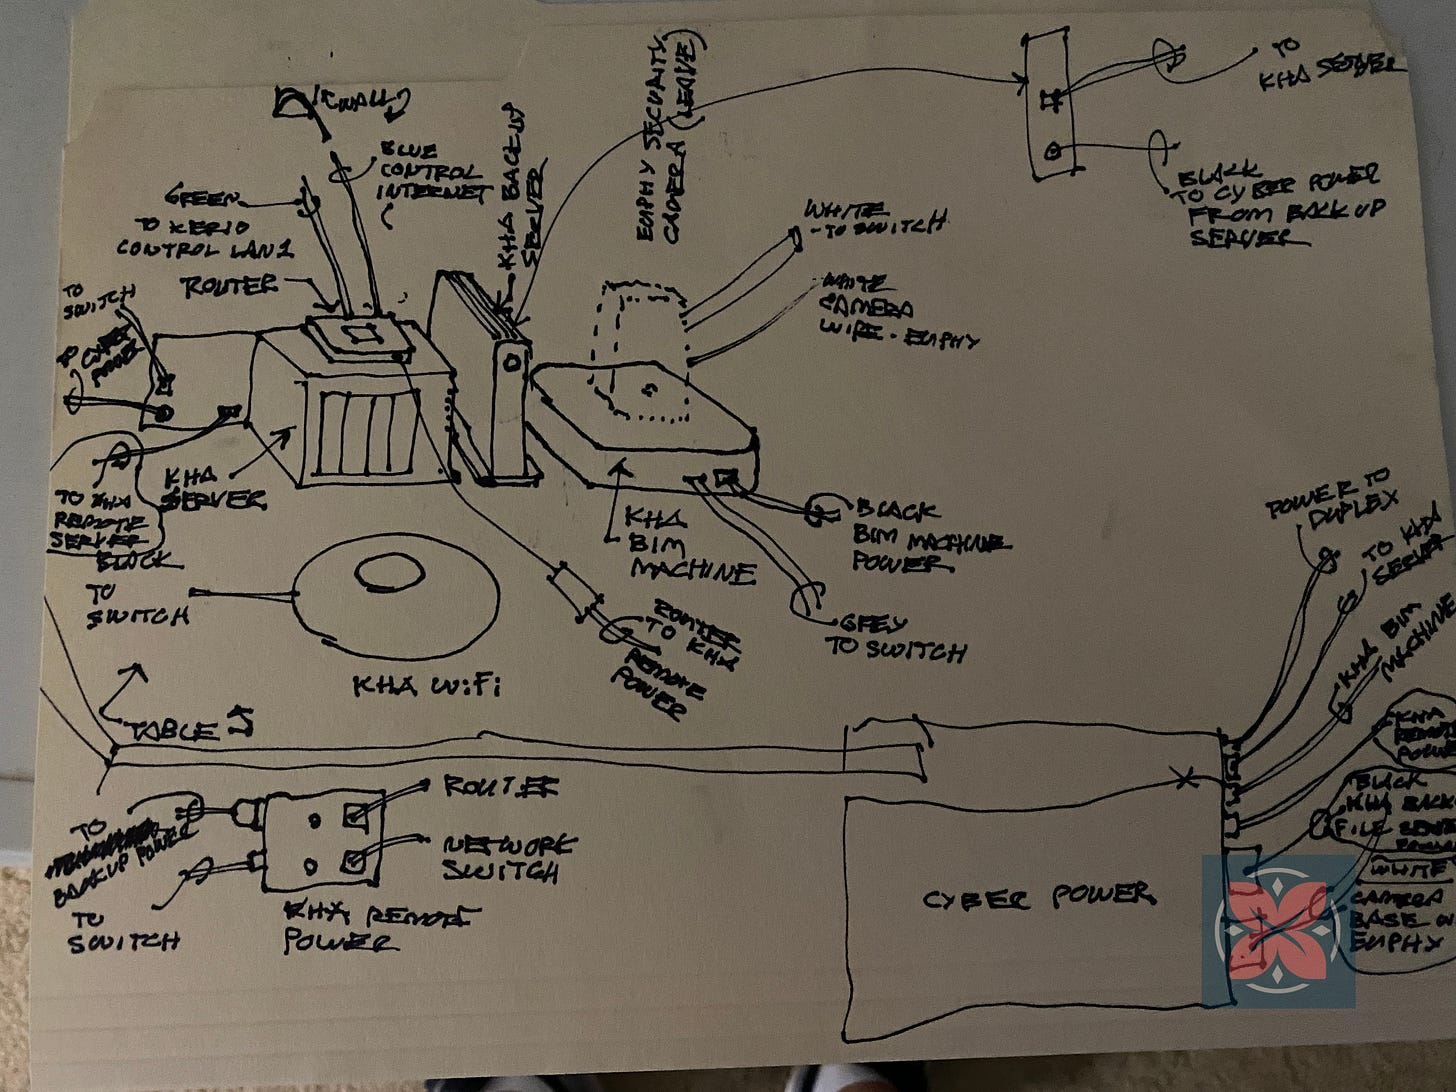 WALL
BLUE
CONTROL
INTERNET
GREEN
TO KERIO
CONTROL LAN1
ROUTER
KHA BACKUP
SERVER
EMPHY SECURITY
CAMERA (LEAVE)
TO
KHA SERVER
BLACK
TO CYBER POWER
FROM BACKUP
SERVER
WHITE
-TO SWITCH
WHITE
CAMERA
WIRE - EMPHY
TO
SWITCH
TO
CYBER
POWER
TO KHA
REMOTE
SERVER
BLACK
KHA
SERVER
KHA
BIM
MACHINE
BLACK
BIM MACHINE
POWER
GREY
TO SWITCH
TO
SWITCH
KHA WiFi
ROUTER
TO KHA
REMOTE
POWER
TABLE
POWER TO
DUPLEX
TO KHA
SERVER
KHA BIM
MACHINE
KHA
REMOTE
POWER
BLACK
KHA BACK
FILE
WHITE
CAMERA
BASE W
EMPHY
CYBER POWER
TO
BACKUP POWER
TO
SWITCH
ROUTER
NETWORK
SWITCH
KHA REMOTE
POWER